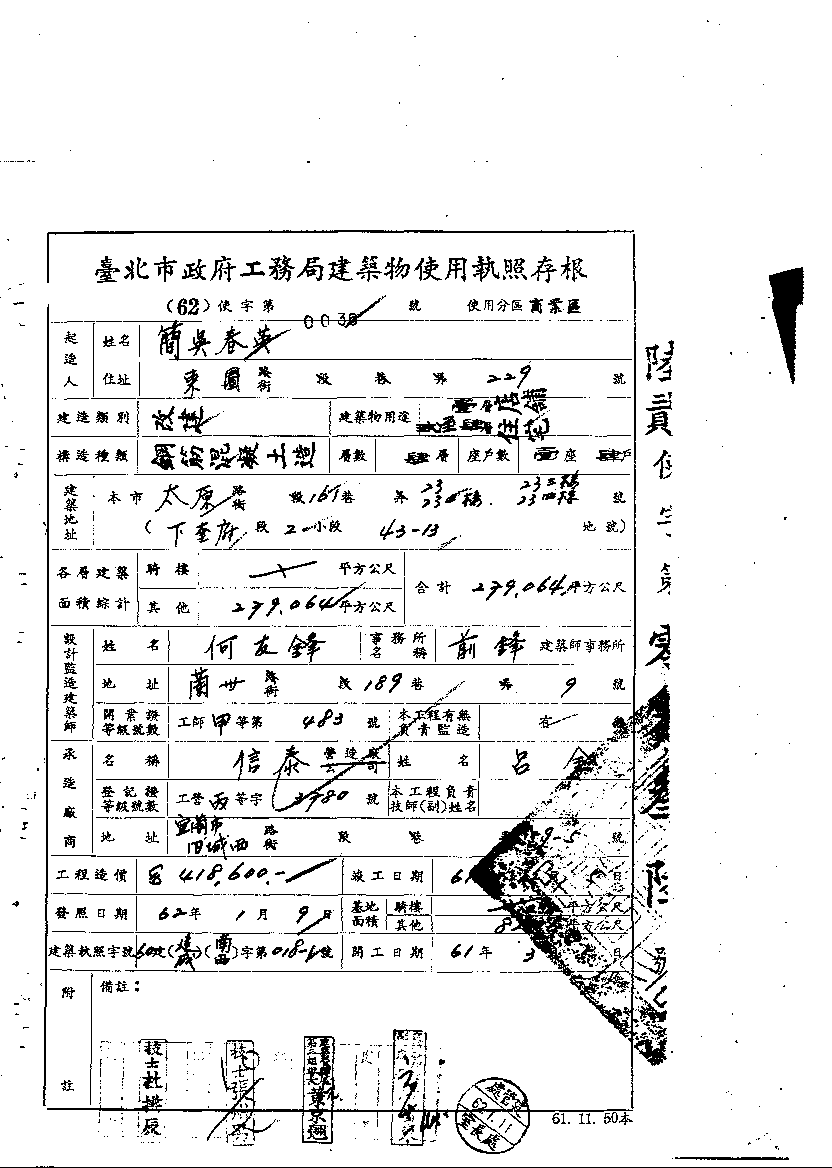 臺北市政府工務局建築物使用執照存根
(62)使字第 0036 號 使用分區 商業區
起造人 姓名 簡吳春英
住址 東園 路街 段 巷 弄 229 號
建造類別 改建 建築物用途 壹層店舖 住宅
構造種類 鋼筋混凝土造 層數 肆層 座戶數 壹座 肆戶
建築地址 本市 太原 路街 段 161巷 弄 23 23二樓 23三樓 23四樓 號
(下奎府 段 2 小段 43-13 地號)
各層建築面積綜計 騎樓 平方公尺 合計 279.064 平方公尺
其他 279.064 平方公尺
設計監造建築師 姓名 何友鋒 事務所名稱 前鋒 建築師事務所
地址 蘭州 路街 段 189巷 弄 9 號
開業證等級號數 工師甲等第 483 號 本工程有無負責監造 有
承造廠商 名稱 信泰 營造廠公司 姓名 呂金
登記證等級號數 工營丙等字 3780 號 本工程負責技師(副)姓名
地址 宜蘭市舊城西 路街 段 巷 9-5 號
工程造價 418,600.- 竣工日期 61 5日
發照日期 62年 1月 9日 基地面積 騎樓 平方公尺
其他 8 平方公尺
建築執照字號 60建(建成)(南西)字第018-1號 開工日期 61年 3 日
附註 備註:
技士杜
技士張
葉京翅
62.1.11
61.11.50本
陸貳使字第零零叁陸號